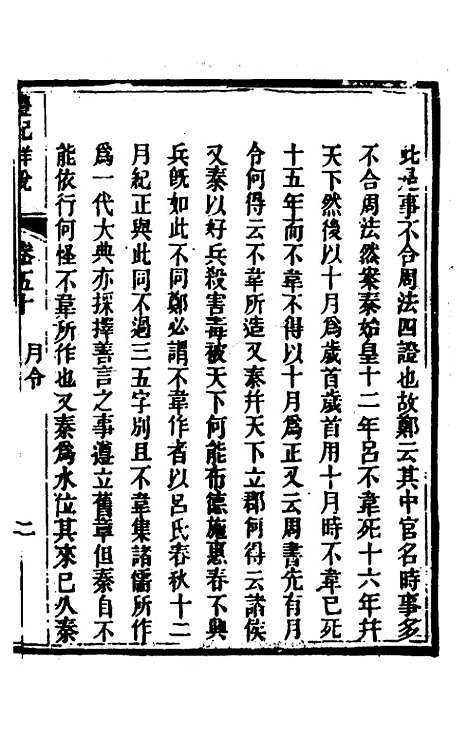 此是事不合周法四證也故鄭云其中官名時事多
不合周法然案秦始皇十二年呂不韋死十六年幷
天下然後以十月爲歲首歲首用十月時不韋已死
十五年而不韋不得以十月爲正又云周書先有月
令何得云不韋所造又秦幷天下立郡何得云諸侯
又秦以好兵殺害毒被天下何能布德施惠春不興
兵旣如此不同鄭必謂不韋作者以呂氏春秋十二
月紀正與此同不過三五字別且不韋集諸儒所作
爲一代大典亦採擇善言之事遵立舊章但秦自不
能依行何怪不韋所作也又秦爲水位其來已久秦
禮記詳說 卷五十 月令 二